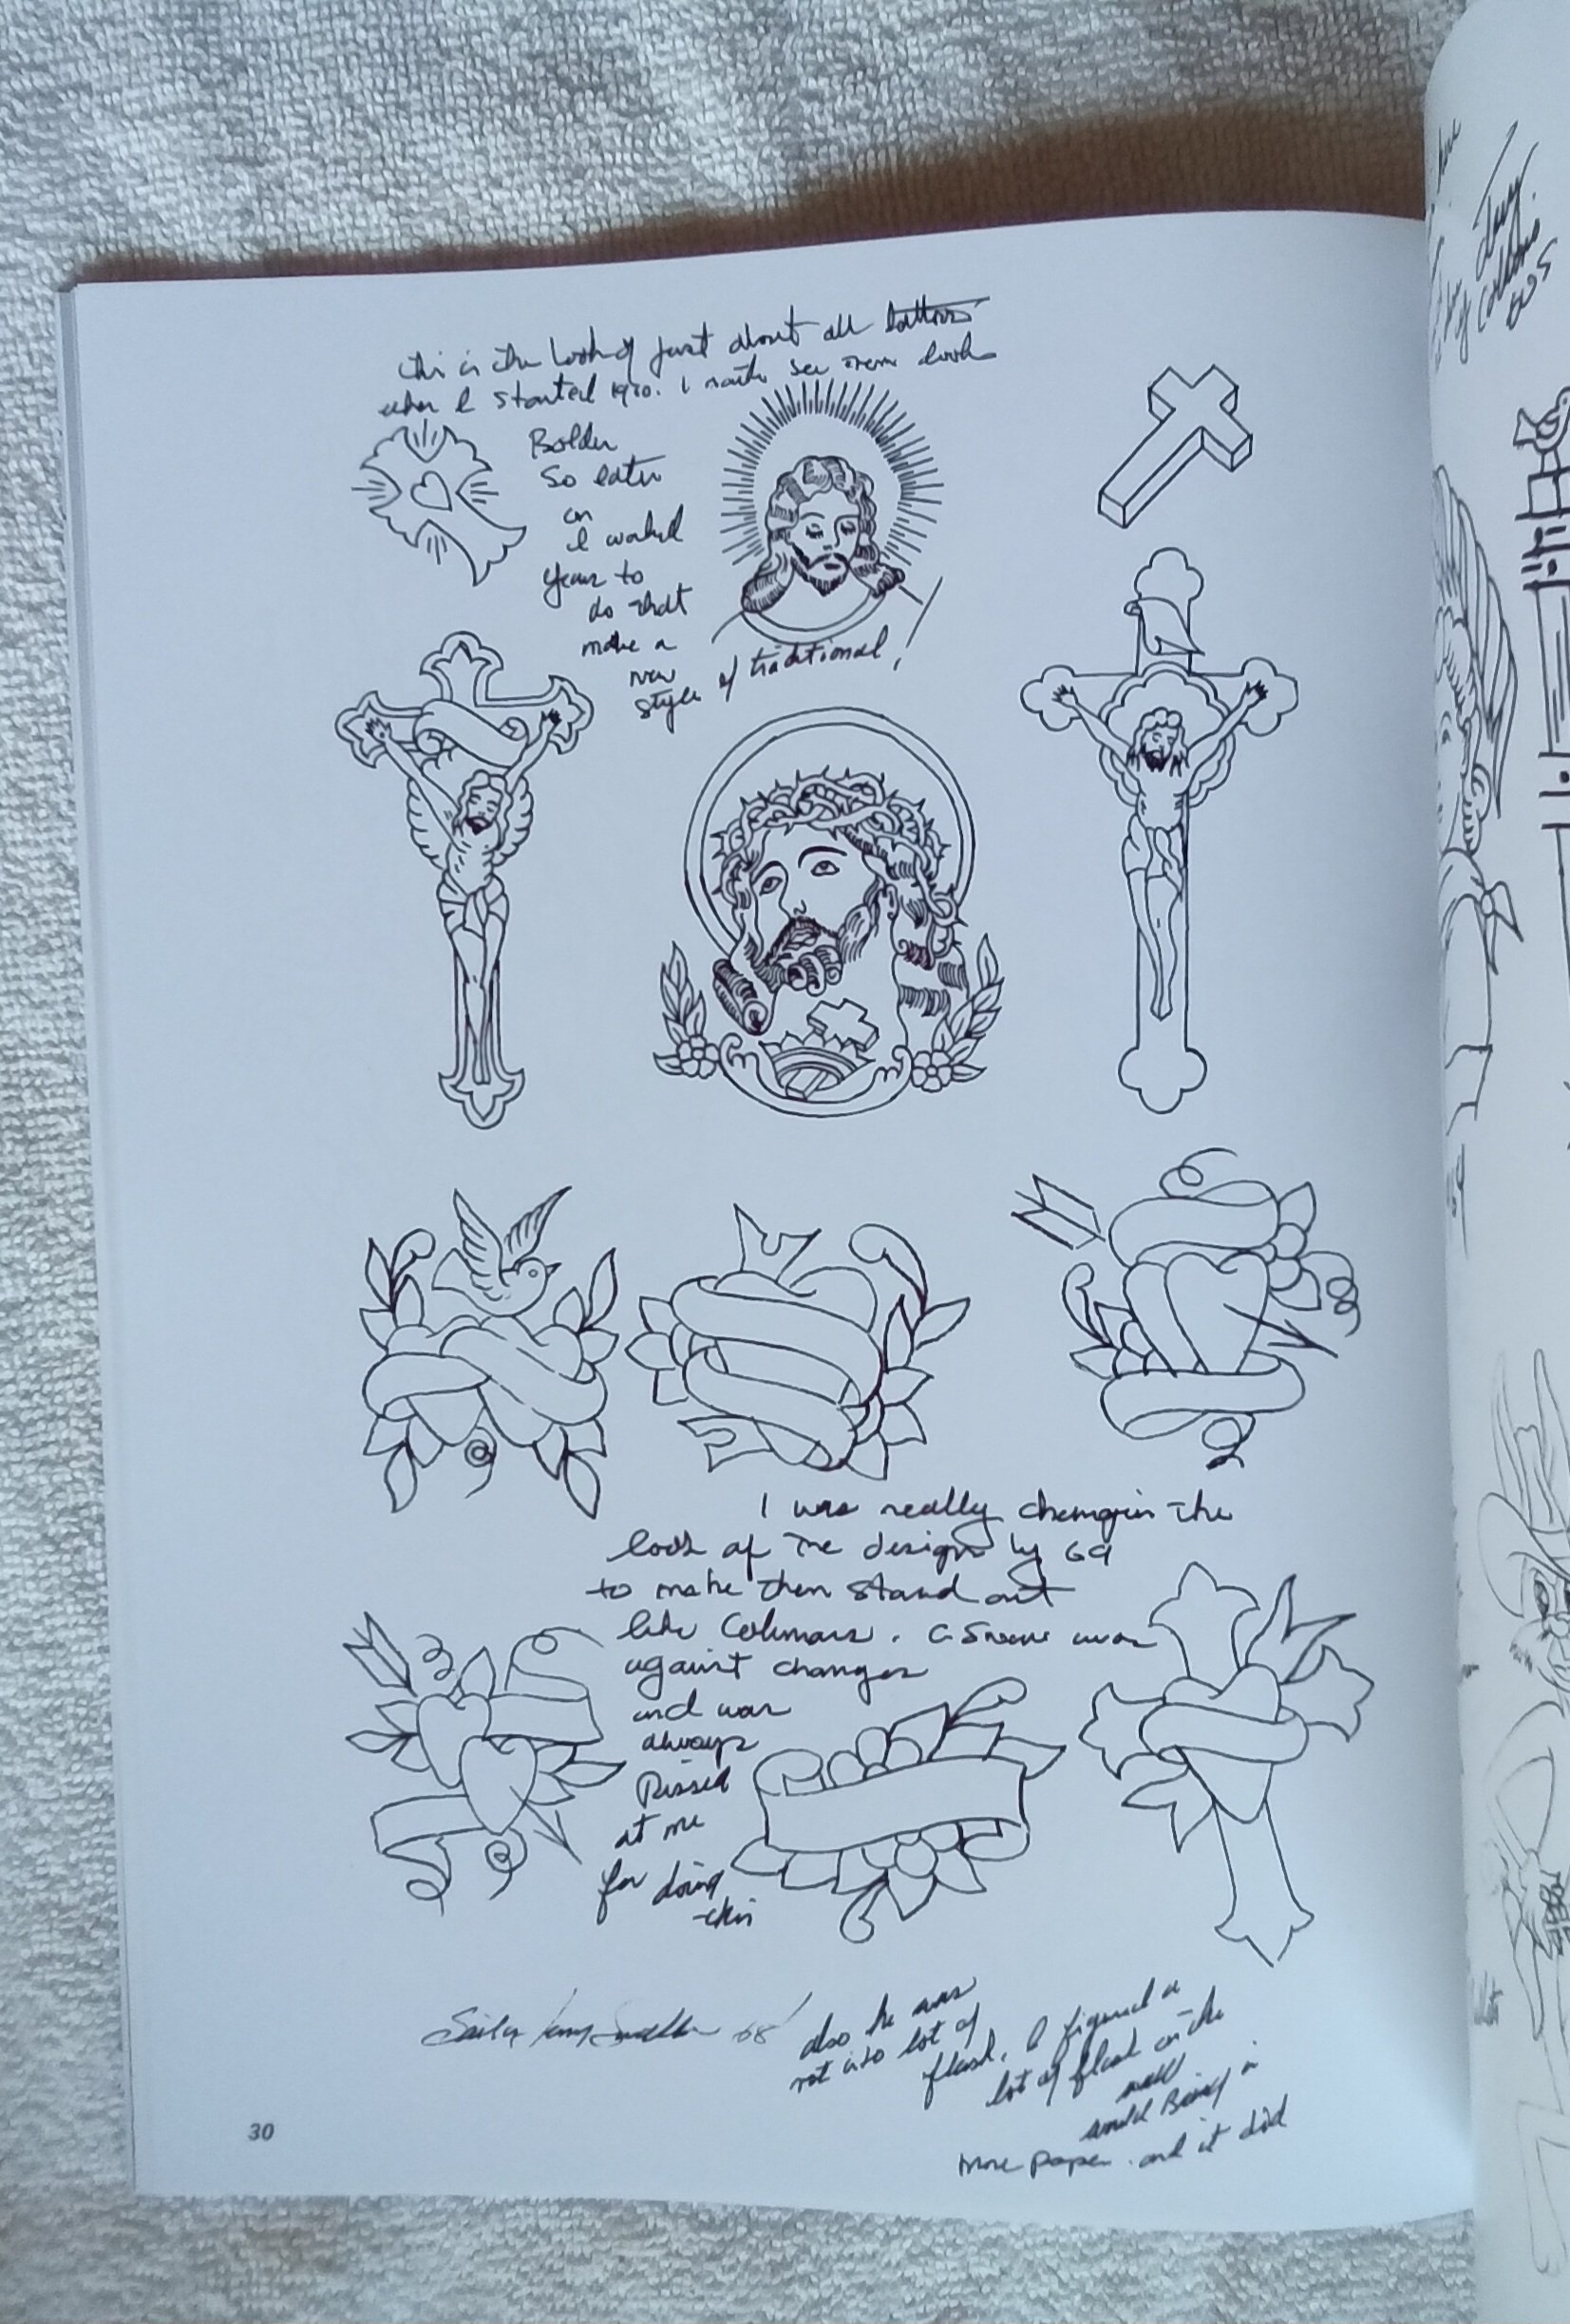 this is the look of just about all tattoos
when I started 1950. I rather see them look
Bolder
So later
on
I worked
years to
do that
make a
new
style of traditional!
I was really changin the
look of the designs by 69
to make them stand out
like Colemans.
against changes
and was
always
Pissed
at me
for doing
this
Sailor 68
also he was
not into lot of
flash. I figured a
lot of flash on the
wall
would Bring in
more paper. and it did
30
69